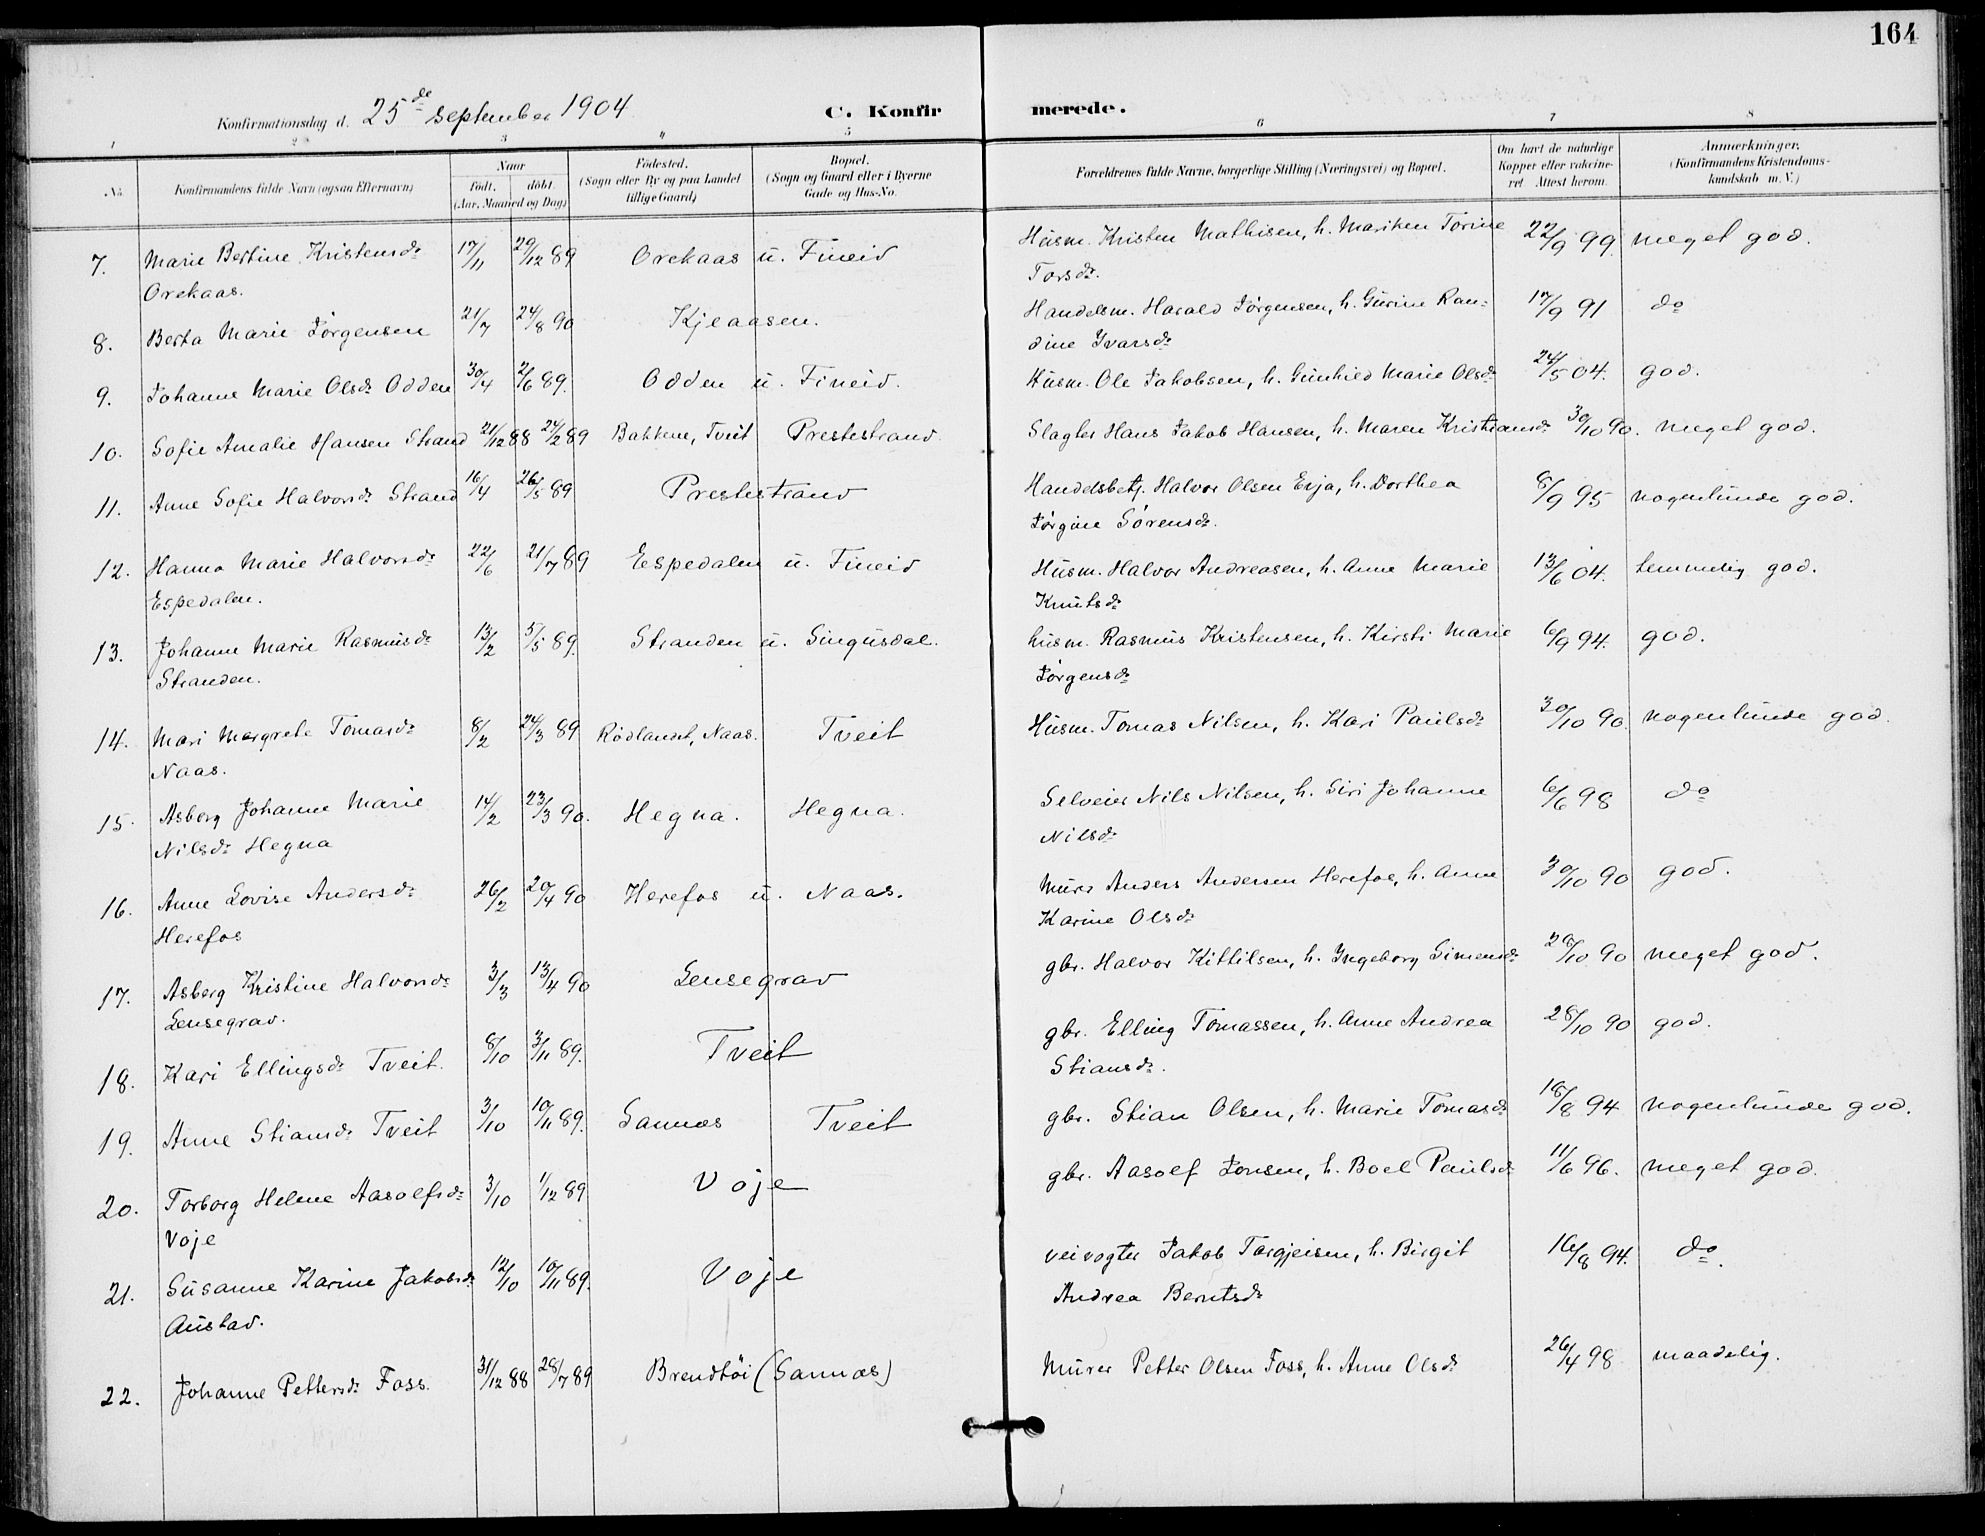 164
Konfirmationsdag d. 25de september 1904 C. Konfirmerede.
1 2 3 4 5 6 7 8
No. Konfirmandens fulde Navn (ogsaa Efternavn) Naar født. døbt. (Aar, Maaned og Dag) Fødested. (Sogn eller By og paa Landet tillige Gaard) Bopæl. (Sogn og Gaard eller i Byerne Gade og Hus-No. Forældrenes fulde Navne, borgerlige Stilling (Næringsvei) og Bopæl. Om havt de naturlige Kopper eller vakcineret Attest herom. Anmærkninger. (Konfirmandens Kristendomskundskab m. V.)
7. Marie Bertine Kristensdr 17/11 29/12 89 Orekaas u. Fineid Husm. Kristen Mathisen, h. Mariken Torine 22/9 99. meget god.
Orekaas. Torsdr.
8. Berta Marie Jørgensen 21/7 24/8 90 Kjeaasen. Handelsm. Harald Jørgensen, h. Gurine Ran- 17/9 91 do
dine Ivarsdr
9. Johanne Marie Olsdr Odden 30/4 2/6 89. Odden u. Fineid. Husm. Ole Jakobsen, h. Gunhild Marie Olsdr 24/5 04. god.
10. Sofie Amalie Hansen Strand 21/12 88 24/2 89 Bakkene, Tveit Prestestrand. Slagter Hans Jakob Hansen, h. Maren Kristiansdr 30/10 90. meget god.
11. Anne Sofie Halvorsdr Strand 16/4 26/5 89 Prestestrand Handelsbetj. Halvor Olsen Eija, h. Dorthea 8/9 95 nogenlunde god.
Jørgine Sørensdr.
12. Hanna Marie Halvorsdr 22/6 21/7 89 Espedalen u. Fineid Husm. Halvor Andreasen, h. Anne Marie 13/6 04. temmelig god.
Espedalen. Knutsdr
13. Johanne Marie Rasmusdr 13/2 5/5 89. Stranden u. Singusdal. husm. Rasmus Kristensen, h. Kirsti Marie 6/9 94. god.
Stranden. Jørgensdr
14. Mari Margrete Tomasdr 8/2 24/3 89 Rødlandet, Naas. Tveit Husm. Tomas Nilsen, h. Kari Paulsdr 30/10 90. nogenlunde god.
Naas.
15. Asberg Johanne Marie 14/2 23/3 90. Hegna. Hegna. Selveier Nils Nilsen, h. Siri Johanne 6/6 98 do
Nilsdr Hegna Nilsdr
16. Anne Lovise Andersdr 26/2 20/4 90 Herefos u. Naas. Murer Anders Andersen Herefos, h. Anne 30/10 90 god.
Herefos Karine Olsdr
17. Asberg Kristine Halvorsdr 3/3 13/4 90 Lensegrav gbr. Halvor Kittilsen, h. Ingeborg Simensdr 29/10 90 meget god.
Lensegrav.
18. Kari Ellingsdr Tveit. 8/10 3/11 89. Tveit gbr. Elling Tomassen, h. Anne Andrea 28/10 90 god.
Stiansdr.
19. Anne Stiansdr Tveit 3/10 10/11 89. Sannes Tveit gbr. Stian Olsen, h. Marie Tomasdr 18/8 94 nogenlunde god.
20. Torborg Helene Aasolfsdr 3/10 1/12 89 Voje gbr. Aasolf Jonsen, h. Boel Paulsdr 11/6 96. meget god.
Voje
21. Susanne Karine Jakobsdr 12/10 10/11 89. Voje veivogter Jakob Targjeisen, h. Birgit 16/8 94. do.
Austad. Andrea Berntsdr
22. Johanne Pettersdr Foss. 31/12 88 28/7 89 Brendtøi (Sannæs) Murer Petter Olsen Foss, h. Anne Olsdr 26/4 98. maadelig.